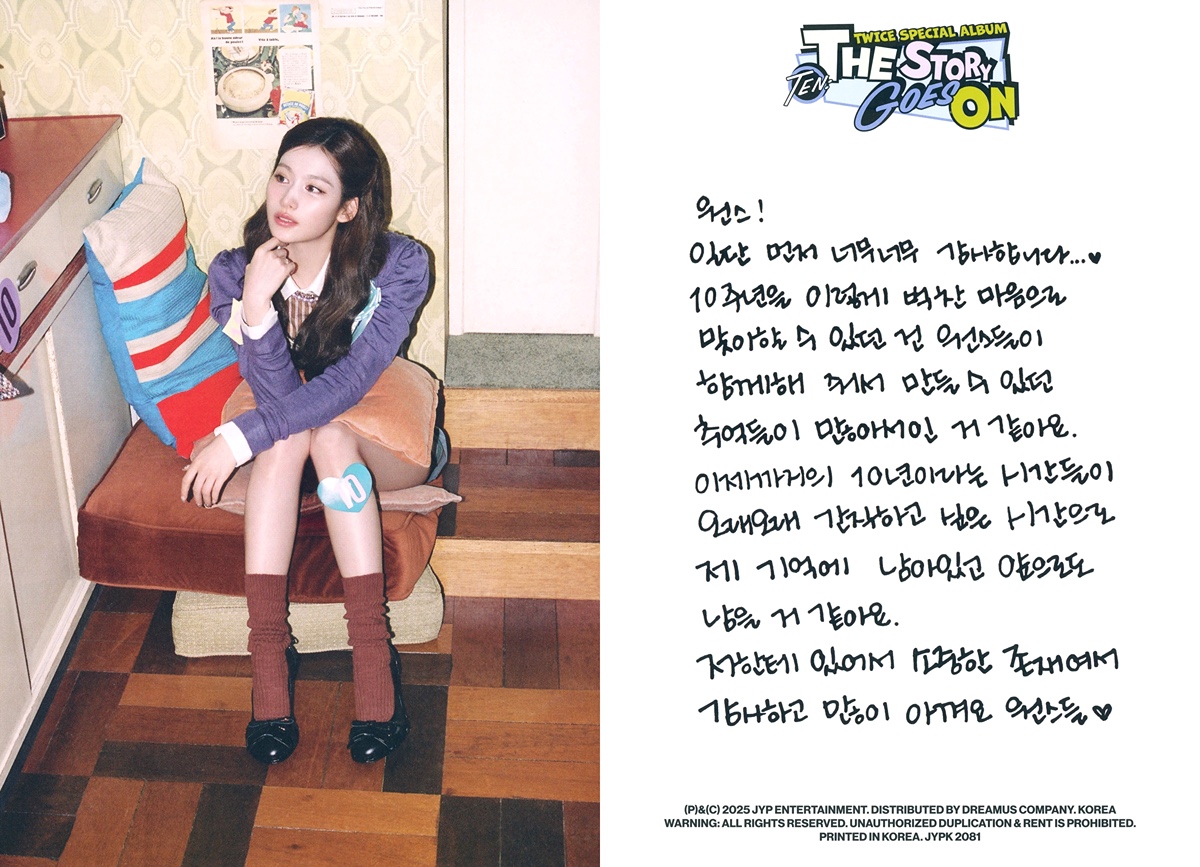 10
10
TWICE SPECIAL ALBUM
TEN:
THE STORY
GOES ON
원스!
일단 먼저 너무너무 감사합니다...♥
10주년을 이렇게 벅찬 마음으로
맞이할 수 있던 건 원스들이
함께해 줘서 만들 수 있던
추억들이 많아서인 거 같아요.
이제까지의 10년이라는 시간들이
오래오래 간직하고 싶은 시간으로
제 기억에 남아있고 앞으로도
남을 거 같아요.
저한테 있어서 소중한 존재여서
감사하고 많이 아껴요 원스들♥
(P)&(C) 2025 JYP ENTERTAINMENT. DISTRIBUTED BY DREAMUS COMPANY. KOREA
WARNING: ALL RIGHTS RESERVED. UNAUTHORIZED DUPLICATION & RENT IS PROHIBITED.
PRINTED IN KOREA. JYPK 2081